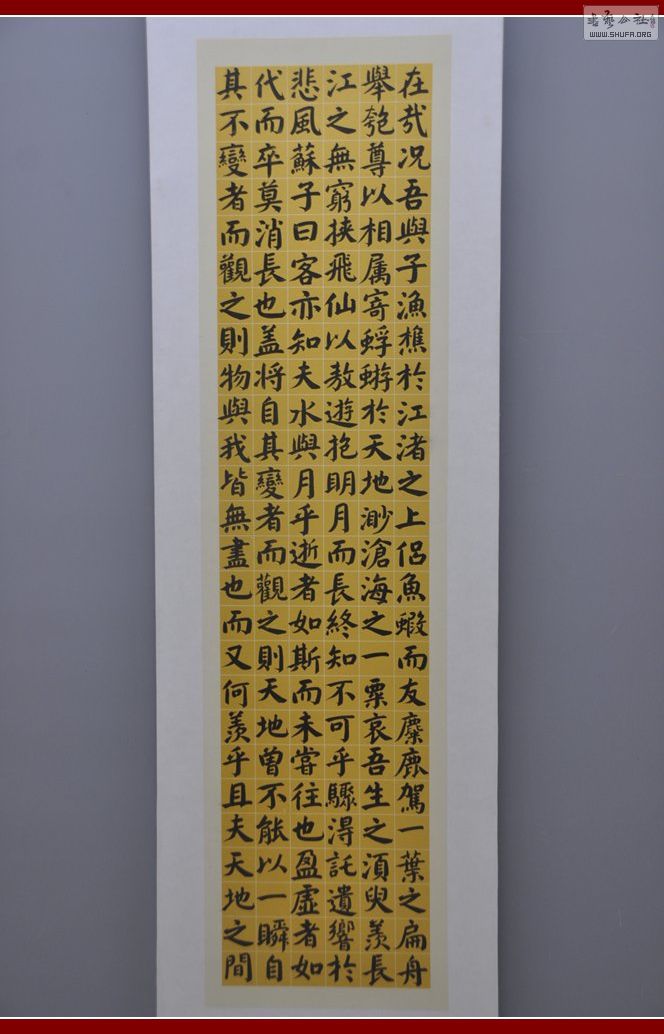 在哉况吾與子漁樵於江渚之上侣魚蝦而友麋鹿駕一葉之扁舟
舉匏尊以相属寄蜉蝣於天地渺滄海之一粟哀吾生之湏臾羨長
江之無窮挾飛仙以敖遊抱明月而長終知不可乎驟得託遺響於
悲風蘇子曰客亦知夫水與月乎逝者如斯而未甞往也盈虛者如
代而卒莫消長也盖將自其變者而觀之則天地曾不能以一瞬自
其不變者而觀之則物與我皆無盡也而又何羨乎且夫天地之間
WWW.SHUFA.ORG